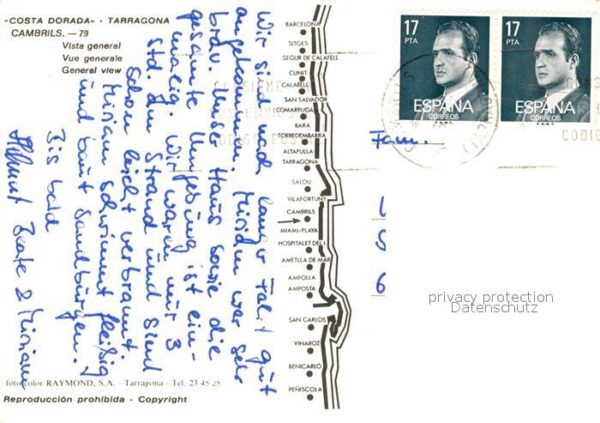 «COSTA DORADA» - TARRAGONA
CAMBRILS. — 79
Vista general
Vue generale
General view
Wir sind nach langer Fahrt gut
angekommen. Miriam war sehr
brav. Unser Haus sowie die
gesamte Umgebung ist ein-
malig. Wir waren nur 3
Std. am Strand und sind
schon leicht verbrannt.
Miriam schwimmt fleißig
und baut Sandburgen.
Bis bald
Helmut Beate & Miriam
fotocolor RAYMOND, S.A. - Tarragona - Tel. 23 45 25
Reproducción prohibida - Copyright
BARCELONA
SITGES
SEGUR DE CALAFELL
CUNIT
CALAFELL
SAN SALVADOR
COMARRUGA
BARA
TORREDEMBARRA
ALTAFULLA
TARRAGONA
SALOU
VILAFORTUNY
CAMBRILS
MIAMI-PLAYA
HOSPITALET DEL I.
AMETLLA DE MAR
AMPOLLA
AMPOSTA
SAN CARLOS
VINAROZ
BENICARLO
PEÑISCOLA
17
PTA
ESPAÑA
CORREOS
17
PTA
ESPAÑA
CORREOS
Fam.
privacy protection
Datenschutz